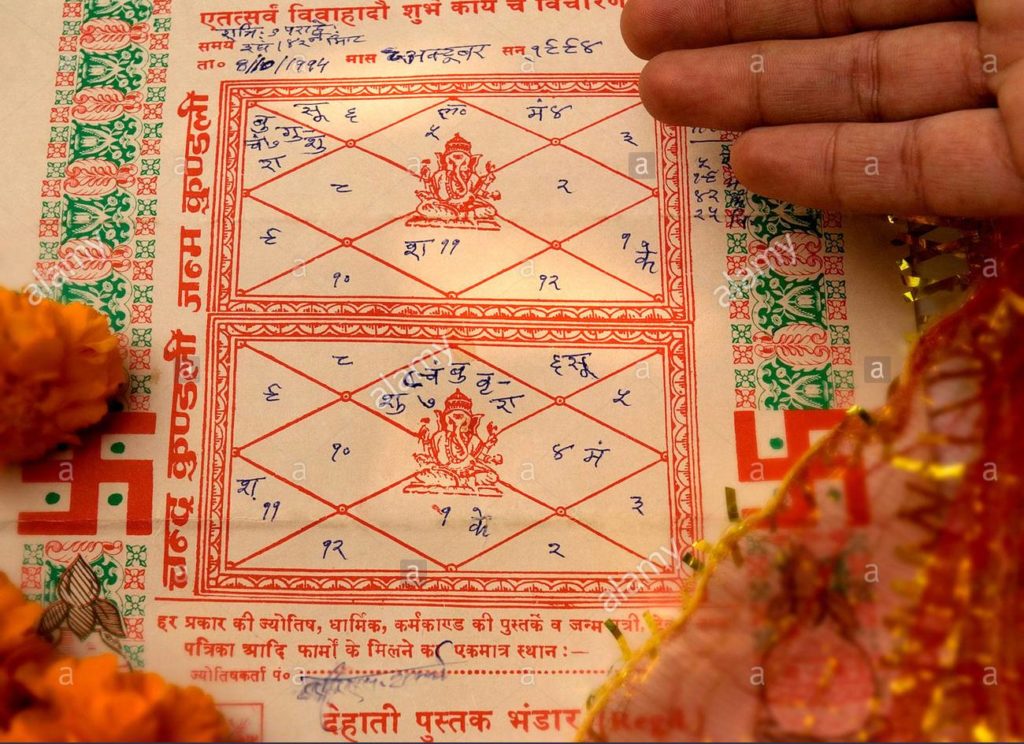 एतत्सर्वं विवाहादौ शुभं कार्यं च विचारण
समय
ता० 8/10/1994 मास अक्टूबर सन् १९९४
जन्म कुण्डली
बु सू ६ ल० मं ४
चं ७ गु शु ५ ३
रा
८ २
९ श ११ १ के
१० १२
चन्द्र कुण्डली
८ चं बु वृ ६ सू
९ शु ७ रा ५
१० ४ मं
श ११ १ के ३
१२ २
हर प्रकार की ज्योतिष, धार्मिक, कर्मकाण्ड की पुस्तकें व जन्म
पत्रिका आदि फार्मों के मिलने का एकमात्र स्थान :—
ज्योतिषकर्ता पं०
देहाती पुस्तक भंडार (Regd)
alamy